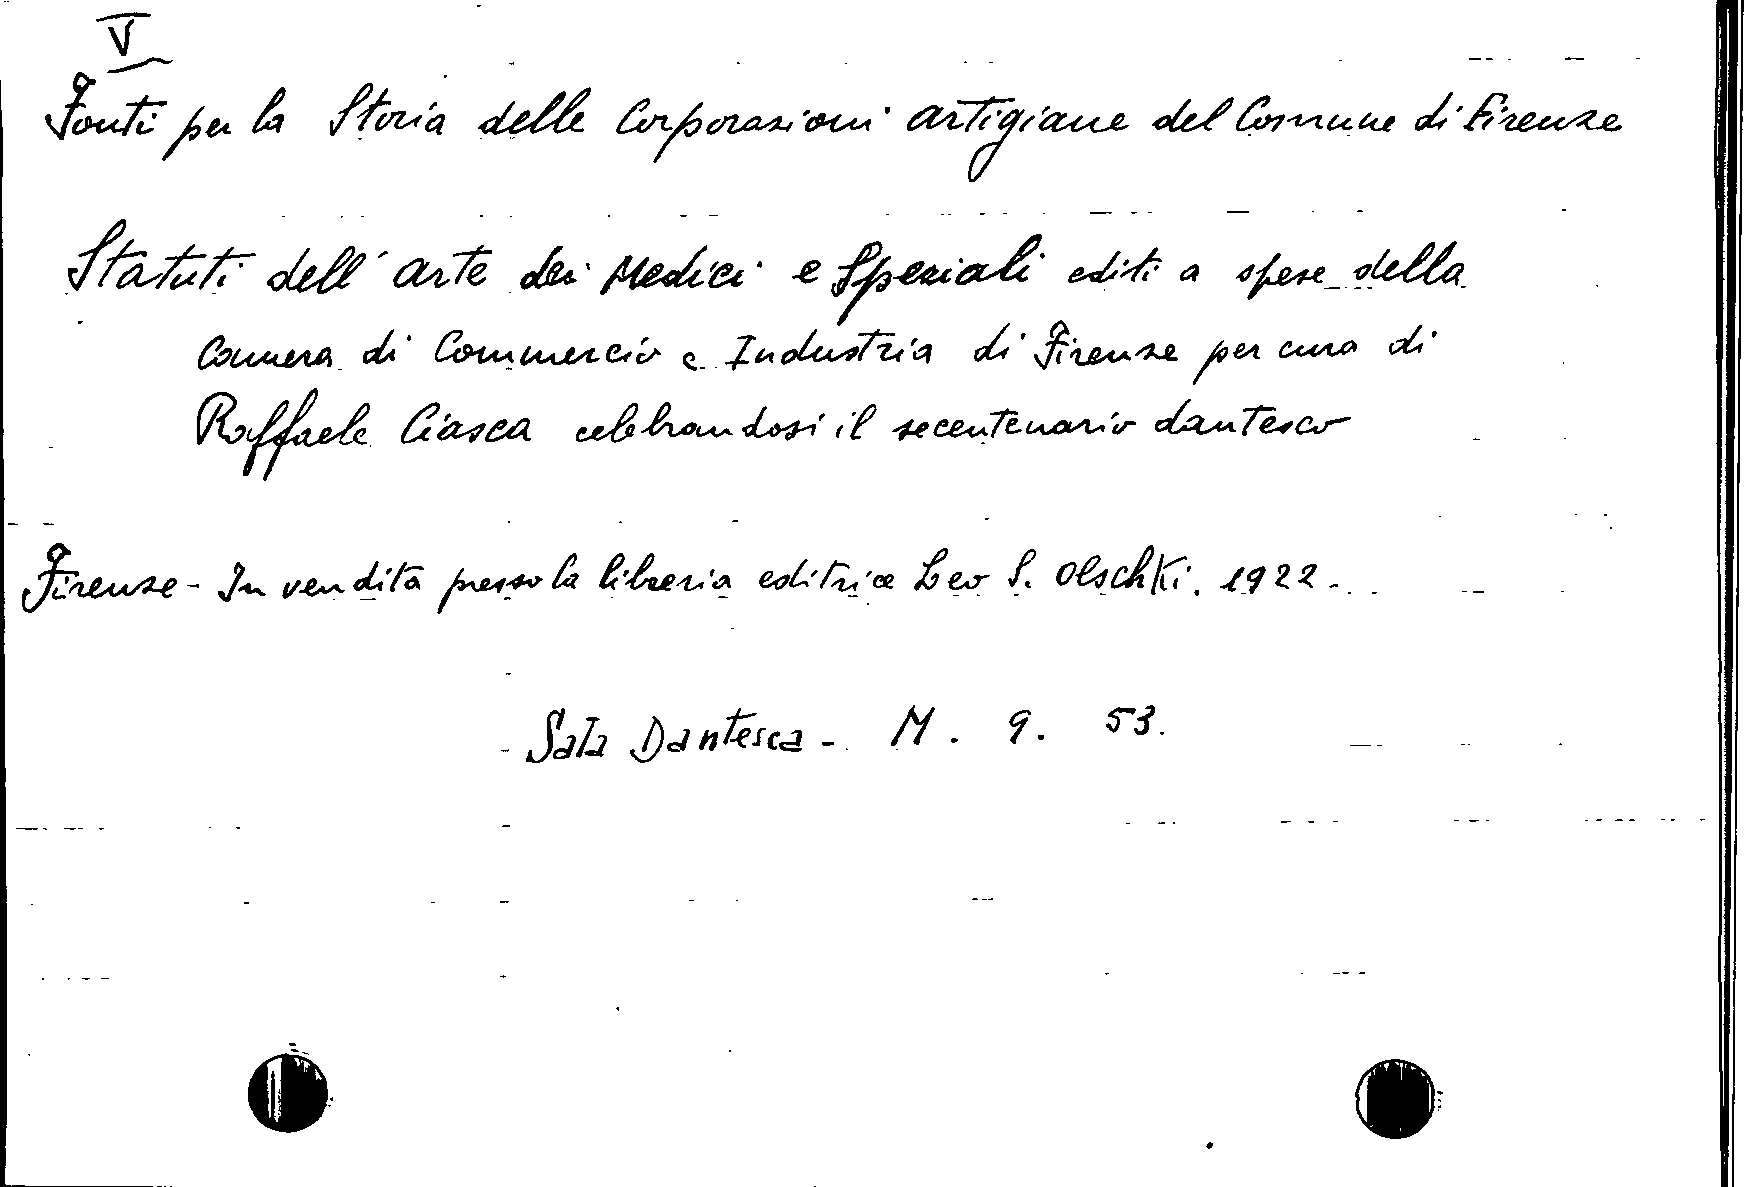 V
Fonti per la Storia delle Corporazioni artigiane del Comune di Firenze
Statuti dell'arte dei Medici e Speziali editi a spese della
Camera di Commercio e Industria di Firenze per cura di
Raffaele Ciasca celebrandosi il secentenario dantesco
Firenze - In vendita presso la libreria editrice Leo S. Olschki. 1922.
Sala Dantesca - M. 9. 53.